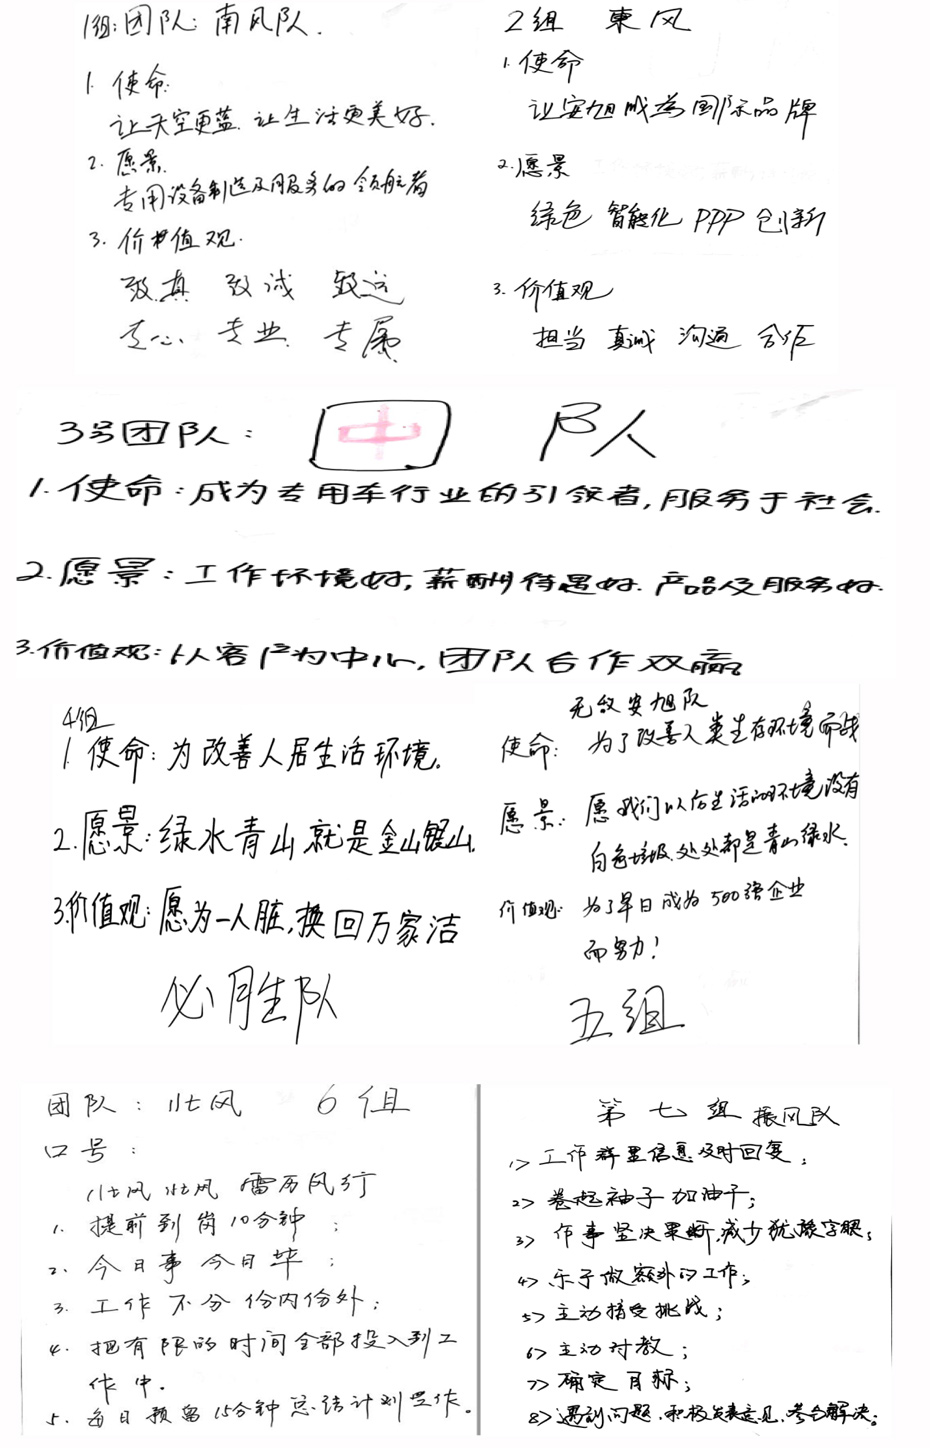 1组:团队:南风队.
1. 使命:
让天空更蓝 让生活更美好.
2. 愿景.
专用设备制造及服务的领航者
3. 价值观.
致真 致诚 致远
专心 专业 专属
2组 東风
1. 使命
让安旭成为国际品牌
2. 愿景
绿色 智能化 PPP 创新
3. 价值观
担当 真诚 沟通 合作
3号团队: 中 队
1. 使命:成为专用车行业的引领者,服务于社会.
2. 愿景:工作环境好,薪酬待遇好.产品及服务好.
3. 价值观:以客户为中心,团队合作双赢
4组
1. 使命:为改善人居生活环境.
2. 愿景:绿水青山就是金山银山.
3. 价值观:愿为一人脏,换回万家洁
必胜队
无敌安旭队
使命: 为了改善人类生存环境而战
愿景: 愿我们以后生活的环境没有
白色垃圾.处处都是青山绿水.
价值观: 为了早日成为500强企业
而努力!
五组
团队:壮风 6组
口号:
壮风壮风 雷厉风行
1. 提前到岗10分钟;
2. 今日事今日毕;
3. 工作不分份内份外;
4. 把有限的时间全部投入到工
作中.
5. 每日预留15分钟总结计划工作。
第七组 振风队
1> 工作群里信息及时回复;
2> 卷起袖子加油干;
3> 作事坚决果断,减少犹豫字眼;
4> 乐于做额外的工作;
5> 主动接受挑战;
6> 主动讨教;
7> 确定目标;
8> 遇到问题.积极发表意见.参与解决。